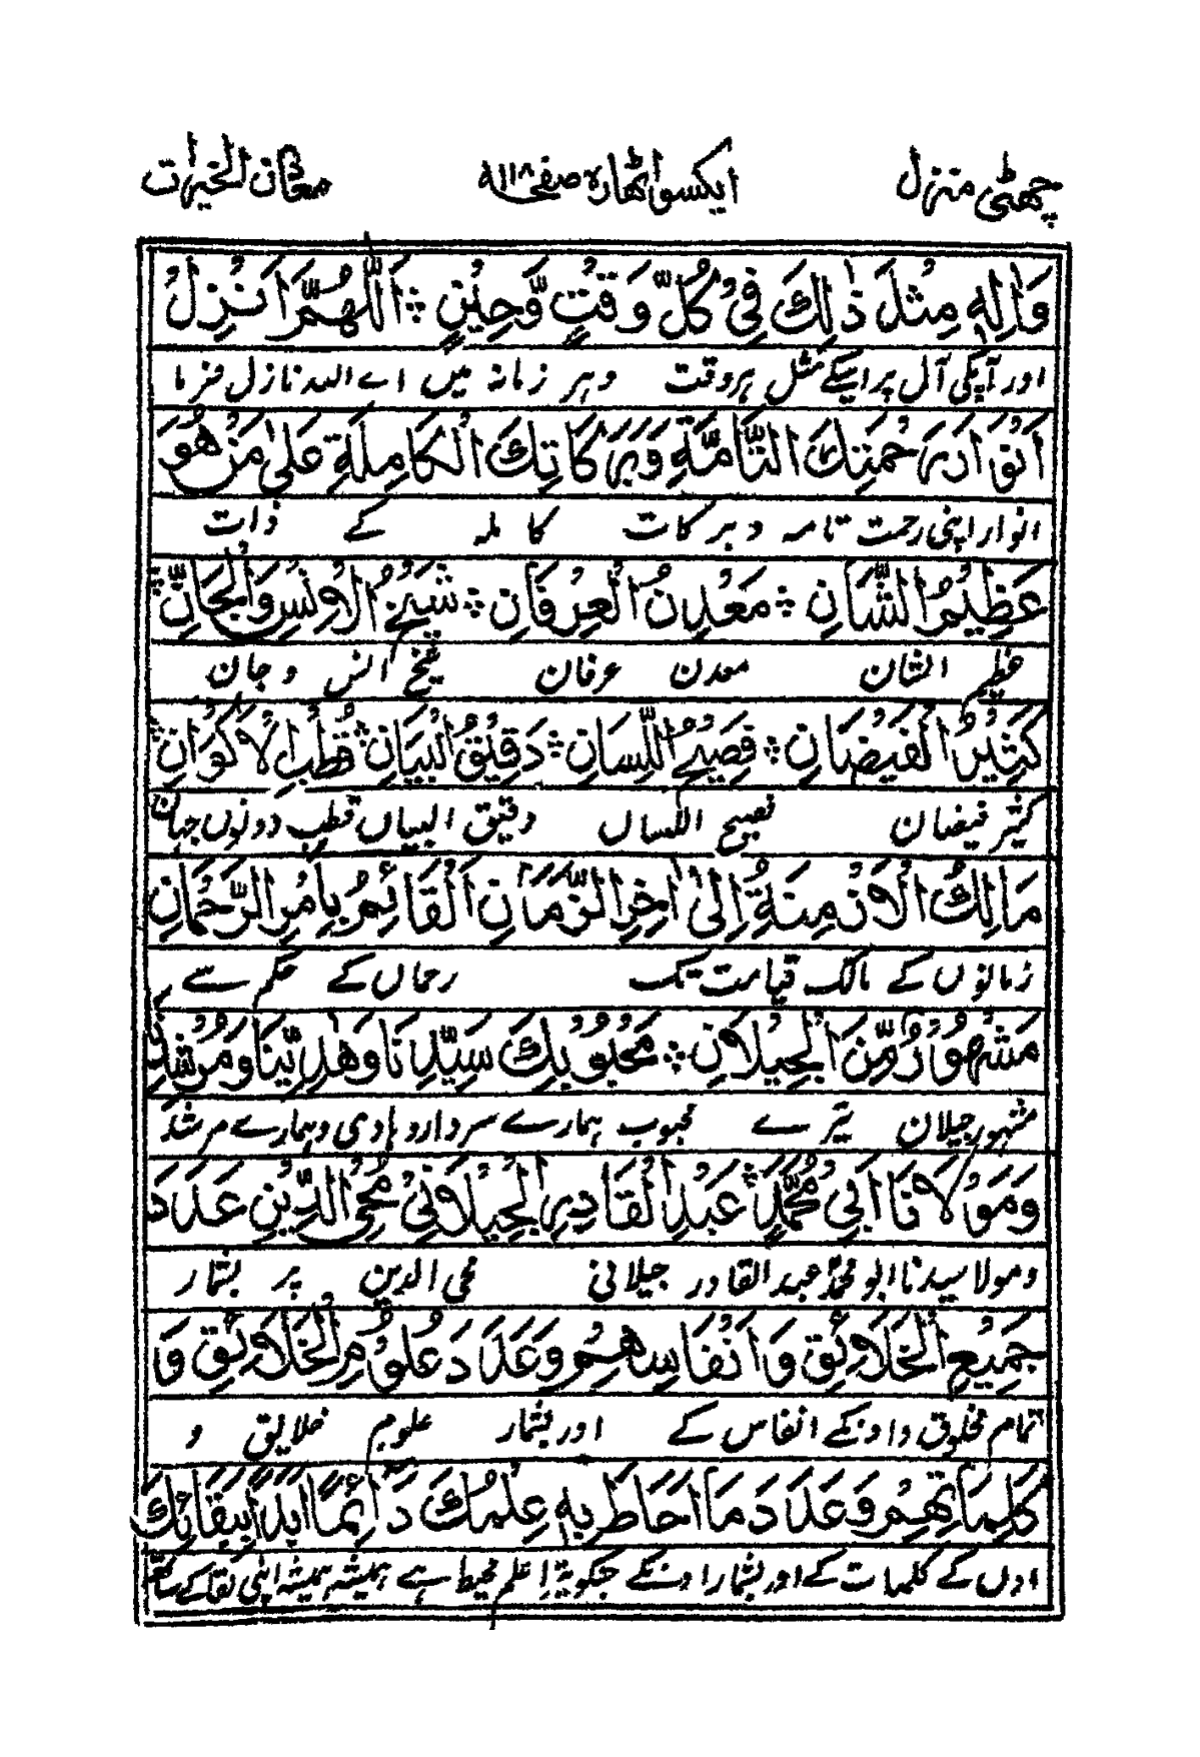 چھٹی منزل ایکسو اٹھارہ صفحہ ۱۱۸ معانی الخیرات
وَاٰلِهٖ مِثْلَ ذٰلِكَ فِیْ كُلِّ وَقْتٍ وَّحِیْنٍ ؞ اَللّٰهُمَّ اَنْزِلْ
اور آپکی آل پر اسیکے مثل ہر وقت و ہر زمانہ میں اے اللہ نازل فرما
اَنْوَارَ رَحْمَتِكَ التَّآمَّةِ وَبَرَكَاتِكَ الْكَامِلَةِ عَلٰی مَنْ هُوَ
انوار اپنی رحمت تامہ و برکات کاملہ کے ذات
عَظِیْمُ الشَّانِ ؞ مَعْدِنُ الْعِرْفَانِ ؞ شَیْخُ الْاِنْسِ وَالْجَانِّ ؞
عظیم الشان معدن عرفان شیخ انس و جان
كَثِیْرُ الْفَیْضَانِ ؞ فَصِیْحُ اللِّسَانِ ؞ دَقِیْقُ الْبَیَانِ ؞ قُطْبُ الْاَكْوَانِ ؞
کثیر فیضان فصیح اللساں دقیق البیاں قطب دونوں جہان
مَالِكُ الْاَزْمِنَةِ اِلٰی اٰخِرِ الزَّمَانِ اَلْقَآئِمُ بِاَمْرِ الرَّحْمَانِ
زمانوں کے مالک قیامت تک رحماں کے حکم سے
مَشْهُوْرٌ مِّنَ الْجِیْلَانِ ؞ مَحْبُوْبِكَ سَیِّدِنَا وَهَادِیْنَا وَمُرْشِدِنَا
مشہور جیلان تیرے محبوب ہمارے سردار و ہادی و ہمارے مرشد
وَمَوْلَانَا اَبِیْ مُحَمَّدٍ عَبْدِ الْقَادِرِ الْجِیْلَانِیْ مُحِیِّ الدِّیْنِ عَدَدَ
و مولا سیدنا ابو محمد عبد القادر جیلانی محی الدین پر بشمار
جَمِیْعِ الْخَلَائِقِ وَاَنْفَاسِهِمْ وَعَدَدَ عُلُوْمِ الْخَلَائِقِ وَ
تمام مخلوق و اونکے انفاس کے اور بشمار علوم خلایق و
كَلِمَاتِهِمْ وَعَدَدَ مَا اَحَاطَ بِهٖ عِلْمُكَ دَآئِمًا اَبَدًا بِبَقَائِكَ
اوں کے کلمات کے اور بشمار اونکے جسکو تیرا علم محیط ہے ہمیشہ ہمیشہ اپنی بقا کے ساتھ